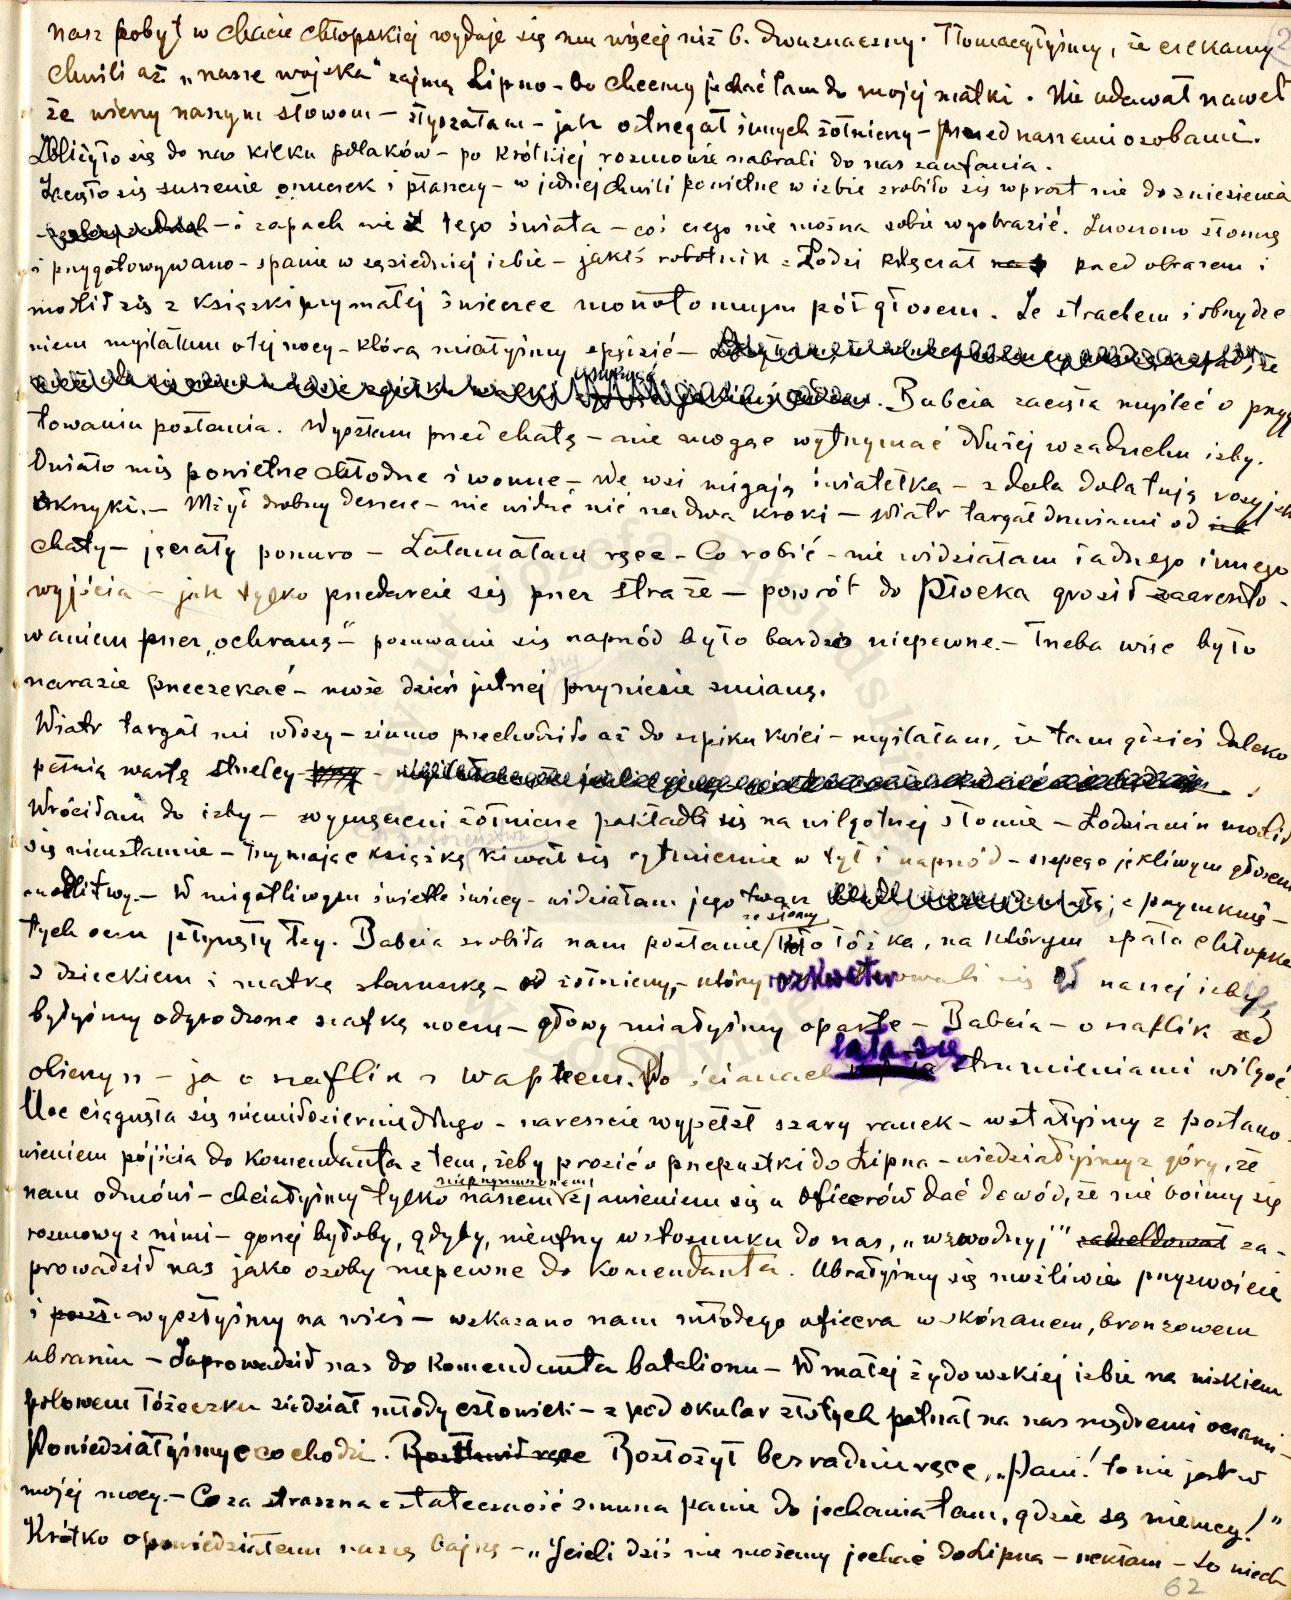 nasz pobyt w chacie chłopskiej wydaje się mu więcej niż b. dwuznaczny. Tłomaczyłyśmy, że czekamy
chwili aż „nasze wojska" zajmą Lipno – bo chcemy jechać tam do mojej matki. Nie udawał nawet
że wierzy naszym słowom – słyszałam – jak ostrzegał innych żołnierzy – przed naszemi osobami.
Zbliżyło się do nas kilku polaków – po krótkiej rozmowie nabrali do nas zaufania.
Zaczęło się suszenie onuczek i płaszczy – w jednej chwili powietrze w izbie zrobiło się wprost nie do zniesienia
– i zapach nie z tego świata – coś czego nie można sobie wyobrazić. Znoszono słomę
i przygotowywano – spanie w sąsiedniej izbie – jakiś robotnik z Łodzi klęczał przed obrazem i
modlił się z książki przy małej świeczce monotonnym półgłosem. Ze strachem i obrzydze
niem myślałam o tej nocy – którą miałyśmy spędzić –
. Babcia zaczęła myśleć o przyg
towaniu posłania. Wyszłam przed chatę – nie mogąc wytrzymać dłużej w zaduchu izby.
Owiało mię powietrze chłodne i wonne – We wsi migają światełka – z dala dolatują rosyjsk
okrzyki. – Mżył drobny deszcz – nie widać nić na dwa kroki – wiatr targał drzwiami od
chaty – jęczały ponuro – Załamałam ręce – Co robić – nie widziałam żadnego innego
wyjścia – jak tylko przedarcie się przez straże – powrót do Płocka groził zaareszto-
waniem przez „ochranę" – posuwanie się naprzód było bardzo niepewne. – Trzeba więc było
narazie przeczekać – może dzień jutrzej przyniesie zmianę.
Wiatr targał mi włosy – zimno przechodziło aż do szpiku kości – myślałam, że tam gdzieś daleko
pełnią wartę strzelcy – .
Wróciłam do izby – zmęczeni żołnierze pokładli się na wilgotnej słomie – Łodzianin modlił
się nieustannie – trzymając książkę kiwał się rytmicznie w tył i naprzód – szepcąc jękliwym głosem
modlitwy. – W migotliwym świetle świecy – widziałam jego twarz , z przymknię-
tych oczu płynęły łzy. Babcia zrobiła nam posłanie ze słomy koło łóżka, na którym spała chłopka
z dzieckiem i matką staruszką – od żołnierzy, – którzy rozkwaterowali się w naszej izbie
byłyśmy odgrodzone szafką nocną – głowy miałyśmy oparte – Babcia – o szaflik od
– ja o szaflik z wapnem. Po ścianach lała się strumieniami wilgoć.
Noc ciągnęła się niemiłosiernie długo – nareszcie wypełzł szary ranek – wstałyśmy z postano-
wieniem pójścia do komendanta z tem, żeby prosić o przepustki do Lipna – wiedziałyśmy z góry, że
nam odmówi – chciałyśmy tylko naszem nieprzymuszonem zjawieniem się u oficerów dać dowód, że nie boimy się
rozmowy z nimi – gorzej byłoby, gdyby, nieufny w stosunku do nas, „wzwodnyj" zameldował za-
prowadził nas jako osoby niepewne do komendanta. Ubrałyśmy się możliwie przyzwoicie
i poszł wyszłyśmy na wieś – wskazano nam młodego oficera w skórzanem, bronzowem
ubraniu – Zaprowadził nas do komendanta batalionu – W małej żydowskiej izbie na niskiem
polowem łóżeczku siedział młody człowiek – z pod okular złotych patrzał na nas mądremi oczami –
Powiedziałyśmy o co chodzi. Rozłożył bezradnie ręce, „Pani! to nie jest w
mojej mocy. – Co za straszna ostateczność zmusza panie do jechania tam, gdzie są niemcy!"
Krótko opowiedziałam naszą bajkę – „Jeżeli dziś nie możemy jechać do Lipna – rzekłam – to niech
62